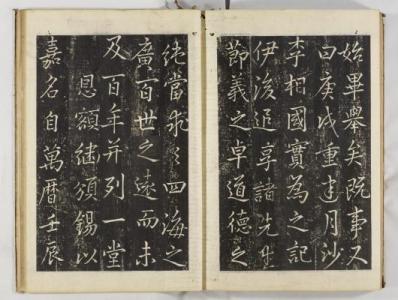 始畢舉矣既事又
曰庚戌重建月沙
李相國實為之記
伊後追享諸先生
節義之卓道德之
純當求之四海之
廣百世之遠而未
及百年并列一堂
恩額継須錫以
嘉名自萬曆壬辰